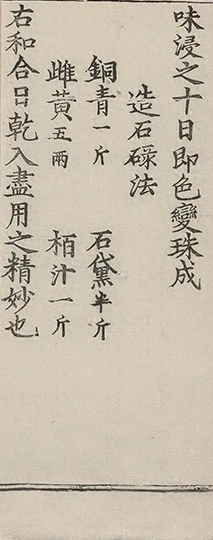 味浸之十日即色變珠成
造石碌法
銅青一斤 石黛半斤
雌黃五兩 栢汁一斤
右和合日乾入盡用之精妙也